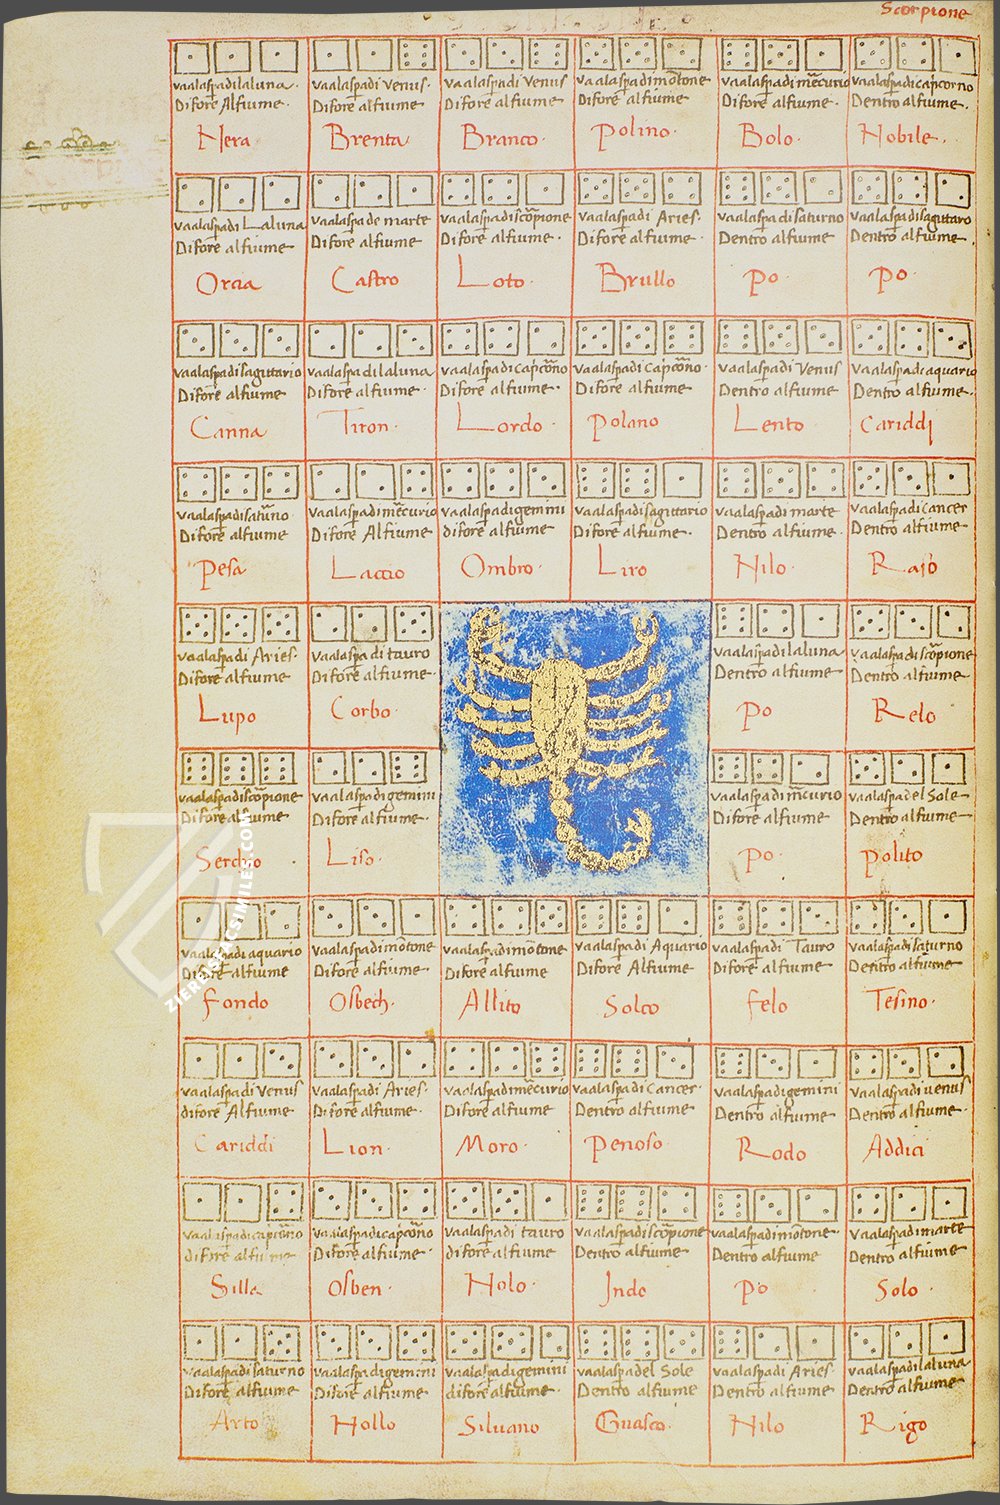 Scorpione
vaalaspadilaluna.
Difore Alfiume.
Nera
vaalaspadi Venus.
Difore alfiume.
Brenta
vaalaspadi Venus
Difore alfiume
Branco.
vaalaspadimōtone
Difore alfiume
Polino.
vaalaspadimēcurio
Difore alfiume.
Bolo.
vaalaspadicapcorno
Dentro alfiume.
Nobile.
vaalaspadi Laluna
Difore alfiume
Orcia
vaalaspade marte
Difore alfiume
Castro
vaalaspadiscōpione
Difore alfiume.
Loto.
vaalaspadi Aries.
Difore alfiume.
Brullo
vaalaspa disaturno
Dentro alfiume
Po.
vaalaspadisagittaro
Dentro alfiume.
Po.
vaalaspadisagittario
Difore alfiume
Canna
vaalaspadilaluna
Difore alfiume.
Tiron.
vaalaspadi capcōno
Difore alfiume.
Lordo.
vaalaspadi capcōno.
Difore alfiume
Polano
vaalaspadi Venus
Dentro alfiume
Lento
vaalaspadiaquario
Dentro alfiume.
Cariddi
vaalaspadisatūno
Difore alfiume
Pesa
vaalaspadimēcurio
Difore Alfiume
Laccio
vaalaspadigemini
difore alfiume
Ombro.
vaalaspadisagittario
Difore alfiume.
Liro
vaalaspadi marte
Dentro alfiume.
Nilo.
vaalaspadicancer
Dentro alfiume
vaalaspadi Aries.
Difore alfiume
Lupo
vaalaspa di tauro
Difore alfiume.
Corbo.
vaalaspadilaluna
Dentro alfiume
Po
vaalaspadiscōpione
Dentro alfiume
Relo
vaalaspadiscōpione
Difore alfiume
Serchio
vaalaspadigemini
Difore alfiume.
Liso.
vaalaspadimēcurio
Difore alfiume
Po.
vaalaspadel Sole
Dentro alfiume
Polito
vaalaspadi aquario
Difore alfiume
Fondo
vaalaspadimōtone
Difore alfiume
Osbech.
vaalaspadimōtone
Difore alfiume
Allito
vaalaspadi Aquario
Difore Alfiume
Solco
vaalaspadi Tauro
Difore alfiume.
Felo
vaalaspadisaturno
Dentro alfiume
Tesino.
vaalaspadi Venus
difore Alfiume
Cariddi
vaalaspadi Aries.
Difore alfiume.
Lion.
vaalaspadimēcurio
Difore alfiume
Moro.
vaalaspadi Cancer.
Dentro alfiume
Penoso
vaalaspadigemini
Dentro alfiume
Rodo
vaalaspadi venus
Dentro alfiume.
Addici
vaalaspadicapcōno
difore alfiume
Silla
vaalaspadicapcōno
Difore alfiume.
Osben.
vaalaspadi tauro
difore alfiume
Nolo.
vaalaspadiscōpione
Dentro alfiume
Indo
vaalaspadimōtone.
Dentro alfiume
Po
vaalaspadimarte
Dentro alfiume
Solo.
vaalaspadi saturno
Difore alfiume
Arto
vaalaspadigemini
Difore alfiume
Nollo
vaalaspadigemini
difore alfiume.
Siluano
vaalaspadel Sole
Dentro alfiume
Guasco.
vaalaspadi Aries.
Dentro alfiume
Nilo
vaalaspadilaluna
Dentro alfiume
Rigo